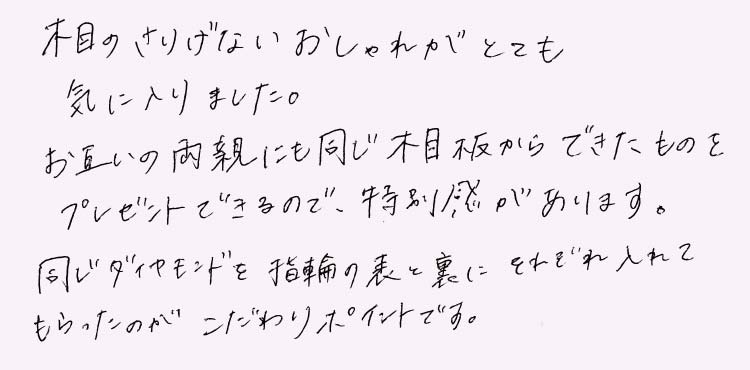 木目のさりげないおしゃれがとても
気に入りました。
お互いの両親にも同じ木目板からできたものを
プレゼントできるので、特別感があります。
同じダイヤモンドを指輪の表と裏にそれぞれ入れて
もらったのがこだわりポイントです。